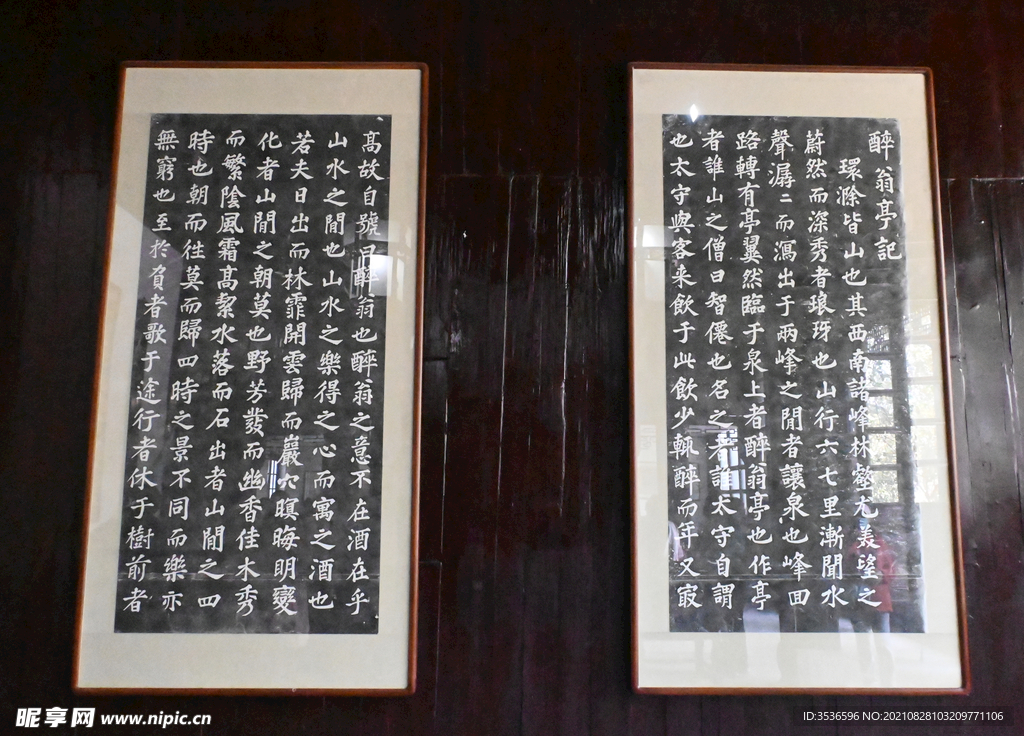 醉翁亭記
環滁皆山也其西南諸峰林壑尤美望之
蔚然而深秀者琅玡也山行六七里漸聞水
聲潺二而瀉出于兩峰之閒者讓泉也峰回
路轉有亭翼然臨于泉上者醉翁亭也作亭
者誰山之僧曰智僊也名之者誰太守自謂
也太守與客来飲于此飲少輒醉而年又寂
高故自號曰醉翁也醉翁之意不在酒在乎
山水之閒也山水之樂得之心而寓之酒也
若夫日出而林霏開雲歸而巖穴暝晦明變
化者山閒之朝莫也野芳發而幽香佳木秀
而繁陰風霜高潔水落而石出者山閒之四
時也朝而往莫而歸四時之景不同而樂亦
無窮也至於負者歌于途行者休于樹前者
昵享网 www.nipic.cn
ID:3536596 NO:20210828103209771106